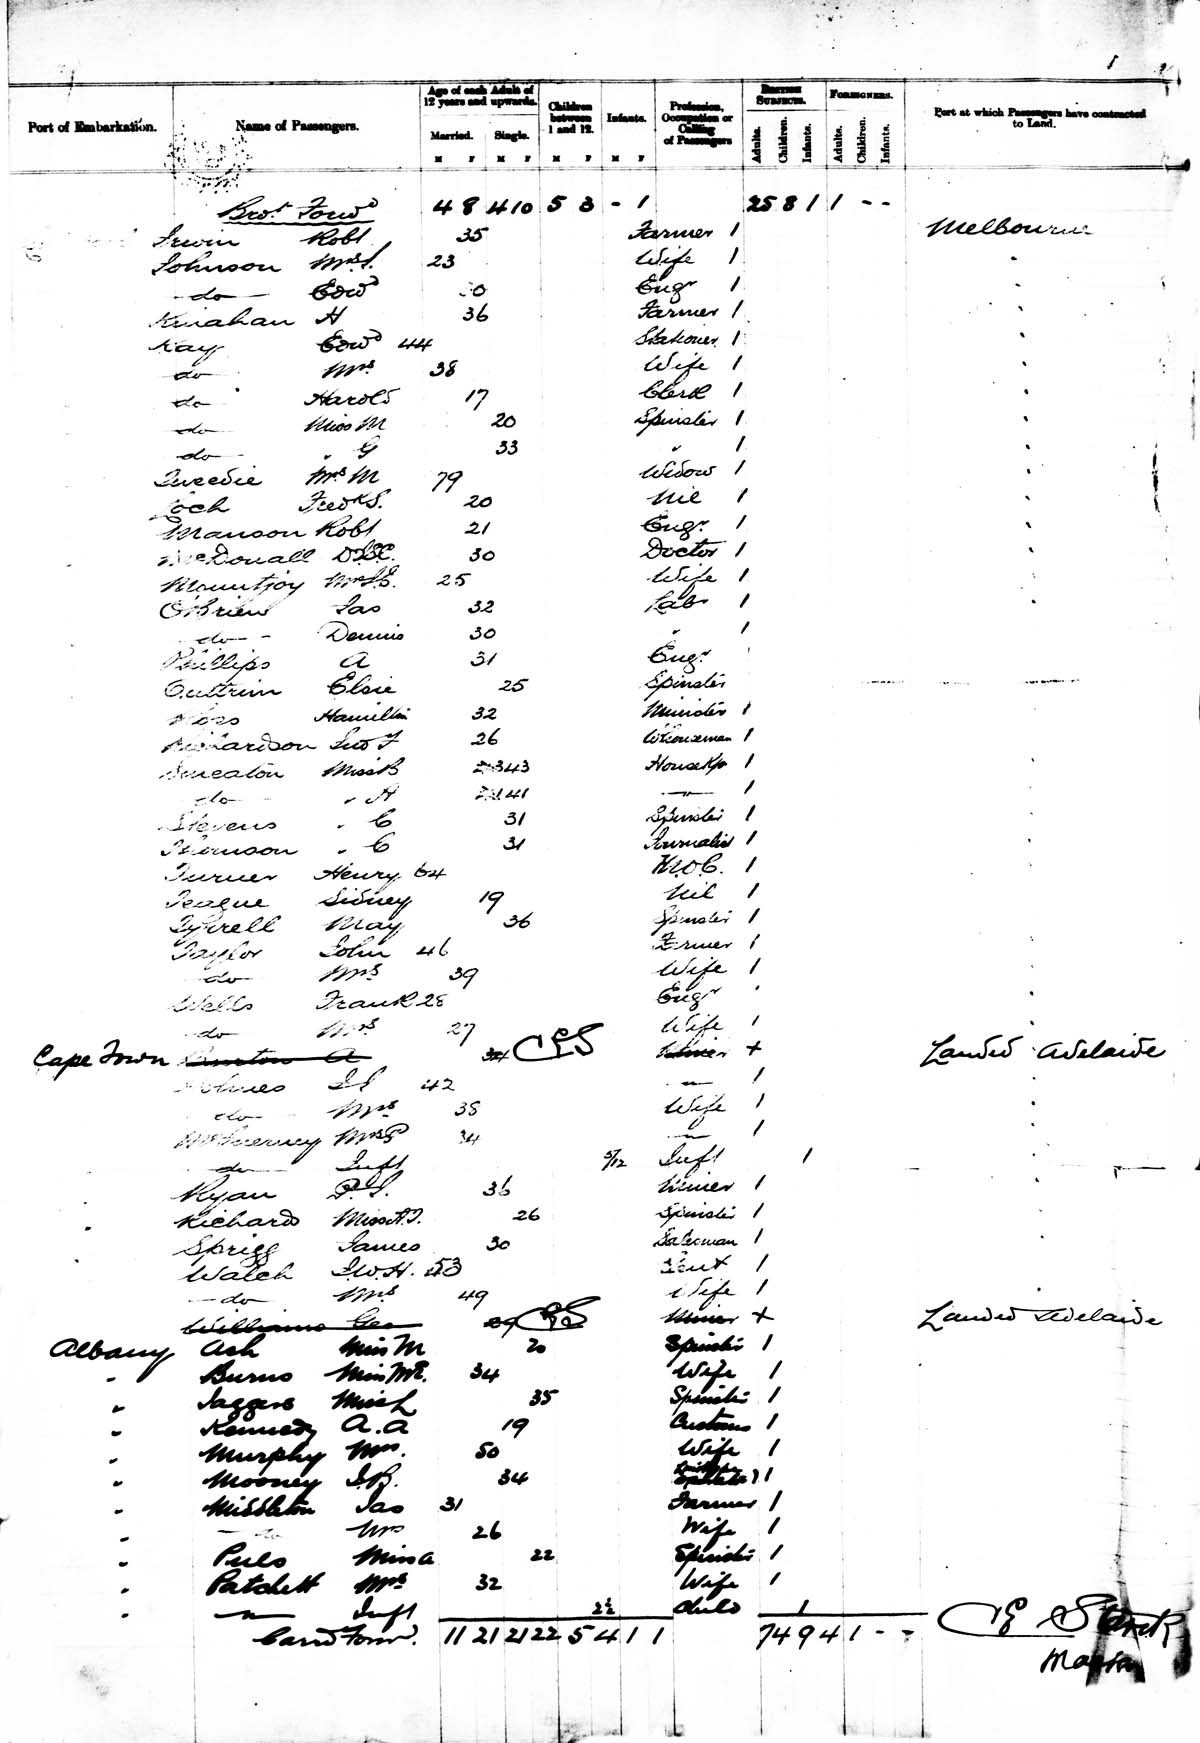 Port of Embarkation. Name of Passengers. Age of each Adult of 12 years and upwards. Married. Single. M F M F Children between 1 and 12. M F Infants. M F Profession, Occupation or Calling of Passengers British Subjects. Adults. Children. Infants. Foreigners. Adults. Children. Infants. Port at which Passengers have contracted to Land.
Brot Forwd 4 8 4 10 5 3 - 1 25 8 1 1 - -
Irwin Robt 35 Farmer 1 Melbourne
Johnson Mrs J. 23 Wife 1
do Edwd Engr 1
Kinahan H 36 Farmer 1
Kay Edwd 44 Stationer 1
do Mrs 38 Wife 1
do Harold 17 Clerk 1
do Miss M 20 Spinster 1
do " G 33 " 1
Tweedie Mrs M 79 Widow 1
Loch Fredk S. 20 Nil 1
Manson Robt 21 Engr 1
McDouall 30 Doctor 1
Mountjoy Mrs J.E. 25 Wife 1
O'Brien Jas 32 Labr 1
do Dennis 30 " 1
Phillips A 31 Engr
Outtrim Elsie 25 Spinster
Ross Hamilton 32 Minister 1
Richardson Jno F 26 W'houseman 1
Smeaton Miss B 43 Housekpr 1
do " A 41 " 1
Stevens " C 31 Spinster 1
Thomson " C 31 Journalist 1
Turner Henry 64 1
Teague Sidney 19 Nil 1
Tyrrell May 36 Spinster 1
Taylor John 46 Farmer 1
do Mrs 39 Wife 1
Wells Frank 28 Engr 1
do Mrs 27 Wife 1
Cape Town Burton A 34 CES Miner + Landed Adelaide
Holmes 42 " 1
do Mrs 38 Wife 1
McInerney Mrs 34 " 1
do Inft 5/12 Inft 1
Ryan P.J. 36 Miner 1
" Richards Miss A.J. 26 Spinster 1
Sprigg James 30 Salesman 1
Walch J.W.H. 53 1
do Mrs 49 Wife 1
Williams Geo CES Miner + Landed Adelaide
Albany Ash Miss M 20 Spinster 1
" Burns 34 Wife 1
" Jaggers Miss L 35 Spinster 1
" Kennedy A.A 19 Customs 1
" Murphy Mrs. 50 Wife 1
" Mooney J.B. 34 1
" Middleton Jas 31 Farmer 1
" do Mrs 26 Wife 1
" Puls Miss A 22 Spinster 1
" Patchett Mrs 32 Wife 1
" " Inft 2½ Child 1
Card Forwd. 11 21 21 22 5 4 1 1 74 9 4 1 - -
CE Starck
Master